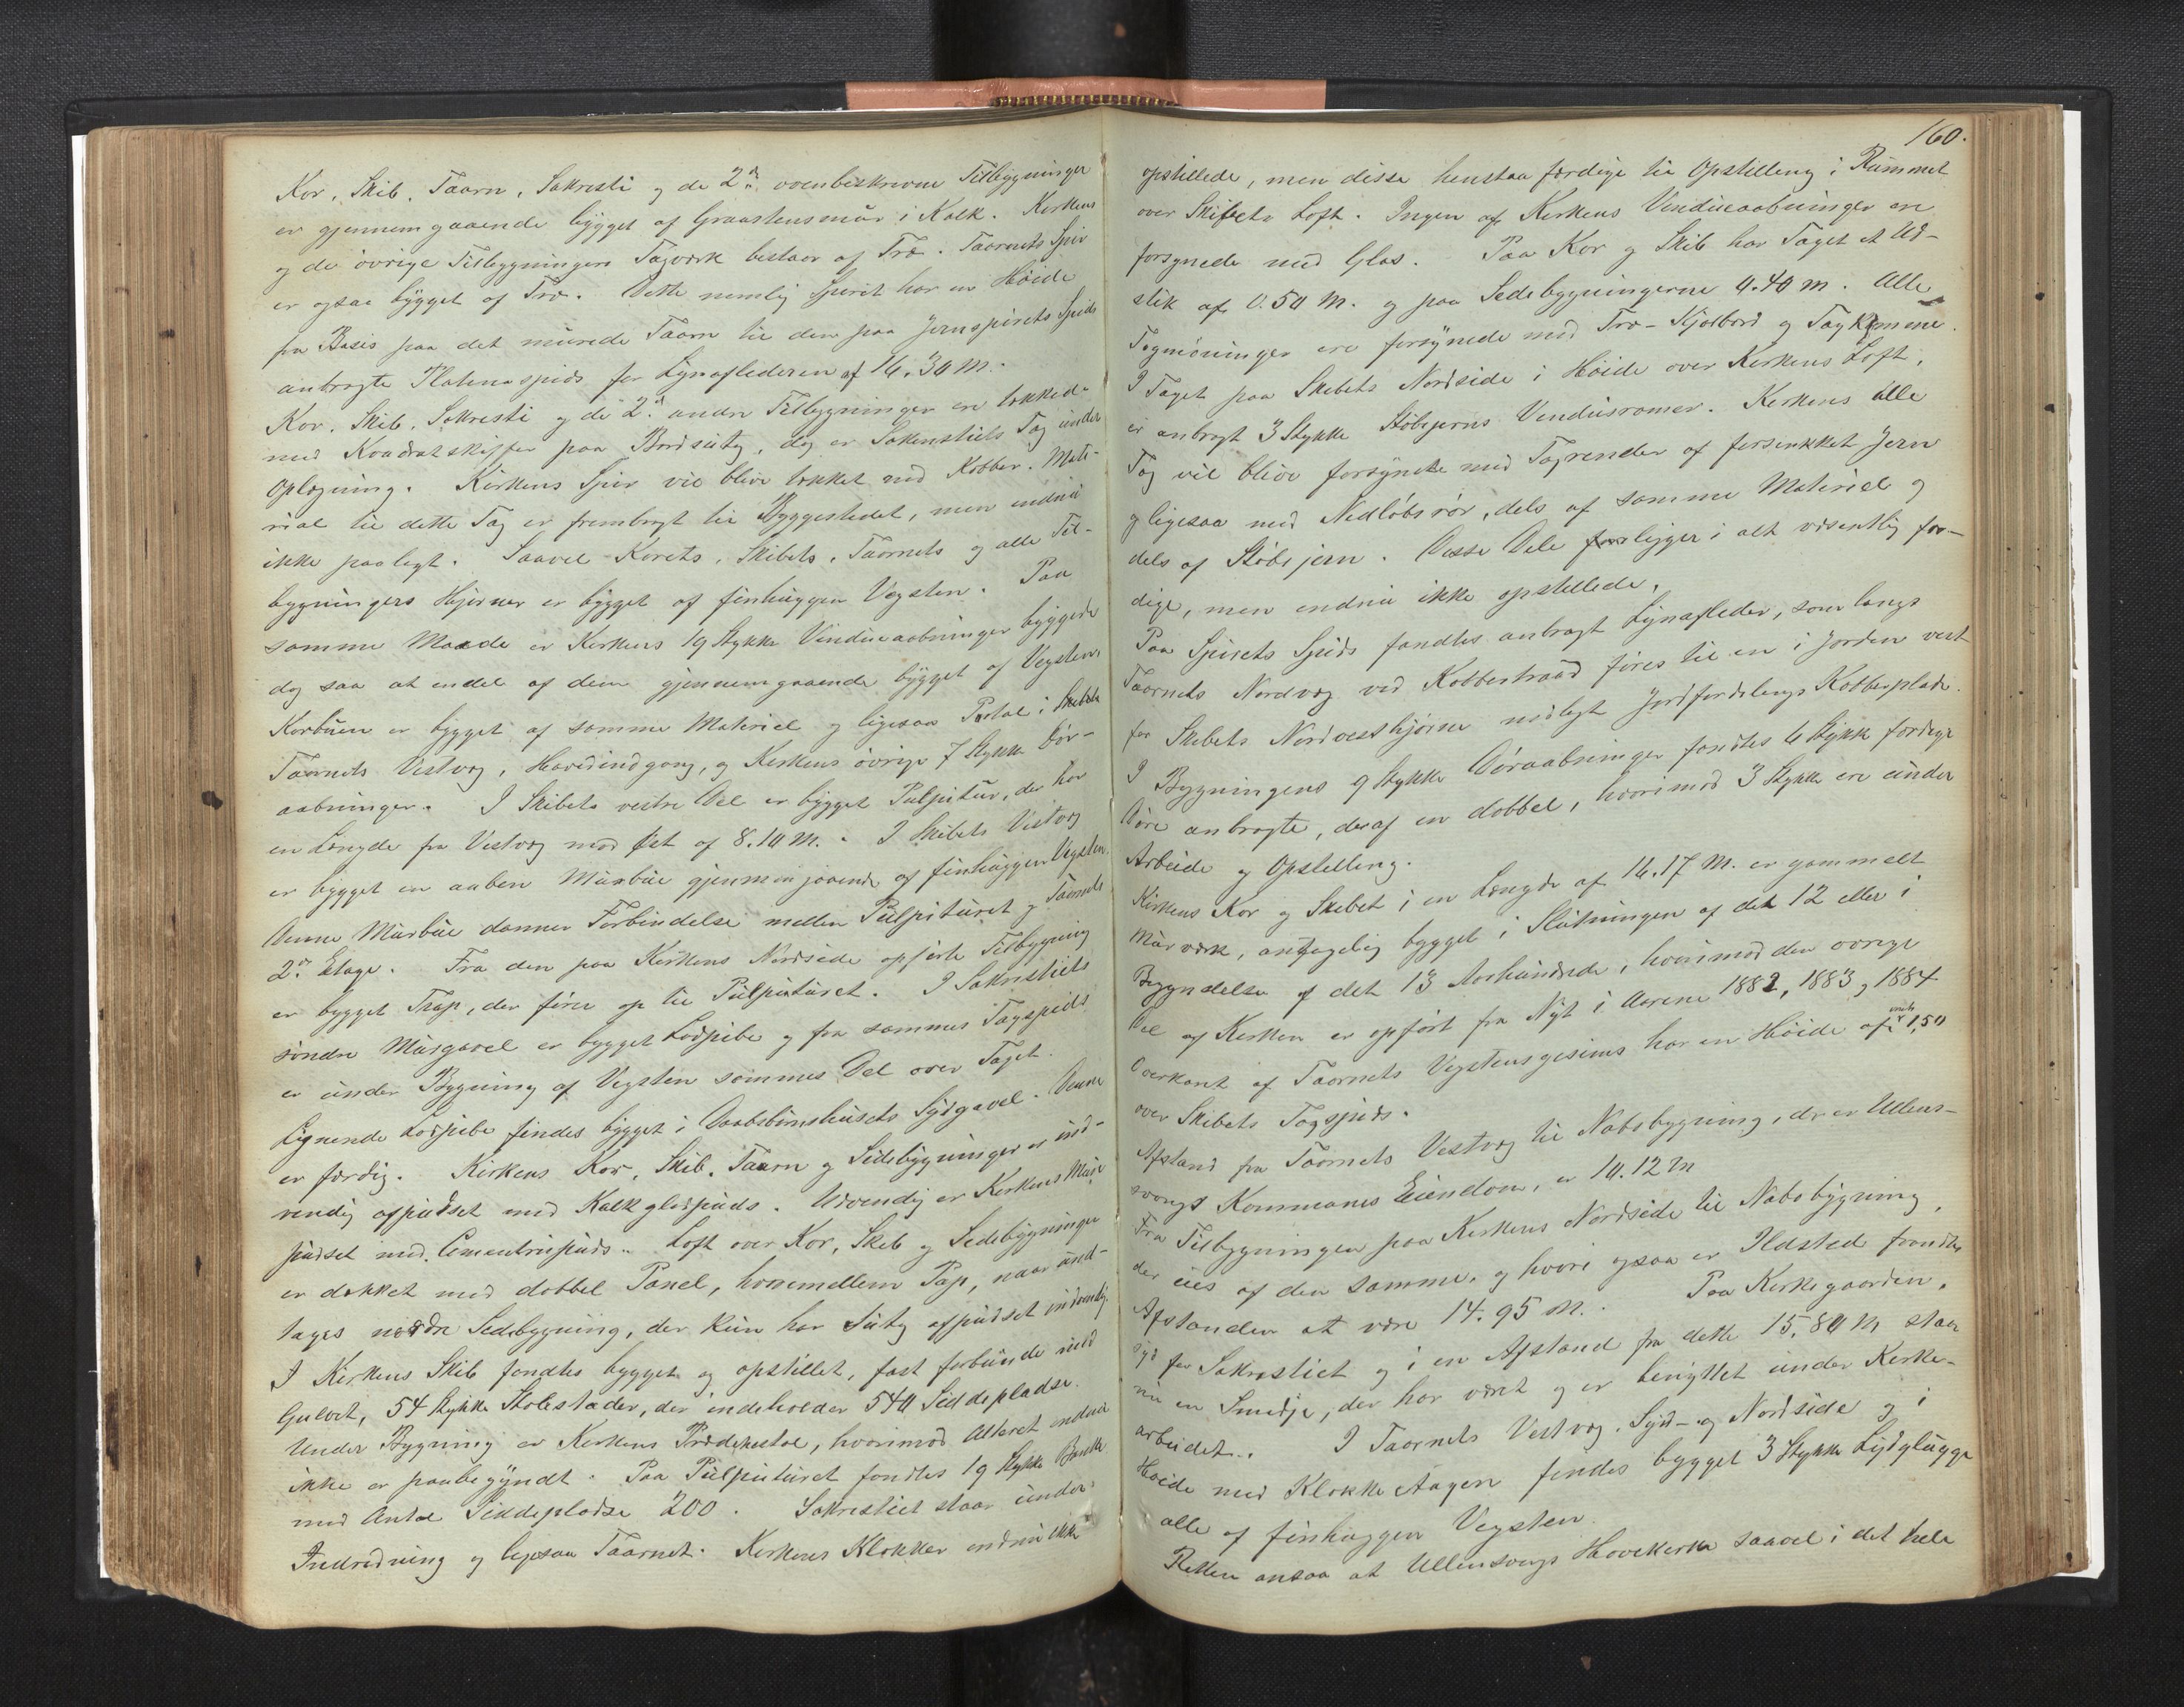 Kor, Skib, Taarn, Sakresti og de 2de ovenbeskrevne Tilbygninger
er gjennemgaaende bygget af Graastensmur i Kalk. Kirkens
og de øvrige Tilbygningers Tagværk bestaar af Træ. Taarnets Spir
er ogsaa bygget af Træ. Dette nemlig Spiret har en Høide
fra Basis paa det murede Taarn til den paa Jernspirets Spids
anbragte Platinaspids for Lynaflederen af 16.30 M.
Kor, Skib, Sakresti og de 2de andre Tilbygninger er tækkede
med Kvadratskiffer paa Bordsutag, dog er Sakristiets Tag under
Oplægning. Kirkens Spir vil blive tækket med Kobber. Mate-
rial til dette Tag er frembragt til Byggestedet, men endnu
ikke paalagt. Saavel Korets, Skibets, Taarnets og alle Til-
bygningers Hjørner er bygget af finhuggen Vegsten. Paa
samme Maade er Kirkens 19 Stykke Vinduesaabninger byggede
dog saa at endel af dem gjennemgaaende bygget af Vegsten.
Korbuen er bygget af samme Materiel og ligesaa Portal i Skibets
Taarnets Vestvæg, Hovedindgang, og Kirkens øvrige 7 Stykke Dør-
aabninger. I Skibets vestre Del er bygget Pulpitur, der har
en Længde fra Vestvæg mod Øst af 8.10 M. I Skibets Vestvæg
er bygget en aaben Murbue gjennemgaaende af finhuggen Vegsten.
Denne Murbue danner Forbindelse mellem Pulpituret og Taarnets
2den Etage. Fra den paa Kirkens Nordside opførte Tilbygning
er bygget Trap, der fører op til Pulpituret. I Sakristiets
søndre Murgavel er bygget Lodpibe og fra sammes Tagspids
er under Bygning af Vegsten sammes Del over Taget.
Lignende Lodpibe findes bygget i Daabsbarnshusets Sydgavel. Denne
er færdig. Kirkens Kor, Skib, Taarn og Sidebygninger er ind-
vendig afpudset med Kalkglatpuds. Udvendig er Kirkens Mure
pudset med Cementrupuds. Loft over Kor, Skib og Sidebygninger
er dækket med dobbel Panel, hvoremellem Pap, naar und-
tages nordre Sidebygning, der kun har Sutag afpudset indvendig.
I Kirkens Skib fandtes bygget og opstillet, fast forbundne med
Gulvet, 54 Stykke Stolestader, der indeholder 540 Siddepladse.
Under Bygning er Kirkens Prædikestol, hvorimod Alteret endnu
ikke er paabegyndt. Paa Pulpituret fandtes 19 Stykke Bænke
med Antal Siddepladse 200. Sakristiet staar under
Indredning og ligesaa Taarnet. Kirkens Klokker endnu ikke
160.
opstillede, men disse henstaa færdige til Opstilling i Rummet
over Skibets Loft. Ingen af Kirkens Vinduesaabninger ere
forsynede med Glas. Paa Kor og Skib har Taget et Ud-
stik af 0.50 M. og paa Sidebygningerne 0.40 M. Alle
Tagmøninger ere forsynede med Træ-Kjølbord og Tagkamme.
I Taget paa Skibets Nordside i Høide over Kirkens Loft,
er anbragt 3 Stykke Støbejerns Vinduesramer. Kirkens alle
Tag vil blive forsynede med Tagrender af forsinkket Jern
og ligesaa med Nedløbsrør, dels af samme Materiel og
dels af Støbejern. Disse Dele foreligger i alt væsentlig fær-
dige, men endnu ikke opstillede.
Paa Spirets Spids fandtes anbragt Lynafleder, som langs
Taarnets Nordvæg ved Kobbertraad føres til en i Jorden vest
for Skibets Nordvesthjørne nedlagt Jordfordelings Kobberplade.
I Bygningens 9 Stykke Døraabninger fandtes 6 Stykke færdige
Døre anbragte, deraf en dobbel, hvorimod 3 Stykke ere under
Arbeide og Opstilling.
Kirkens Kor og Skibet i en Længde af 16.17 M. er gammelt
Murværk, antagelig bygget i Slutningen af det 12 eller i
Begyndelse af det 13 Aarhundrede, hvorimod den øvrige
Del af Kirken er opført fra Nyt i Aarene 1882, 1883 og 1884
Overkant af Taarnets Vegstensgesims har en Høide af 1,50
over Skibets Tagspids.
Afstand fra Taarnets Vestvæg til Nabobygning, der er Ullens-
vangs Kommunes Eiendom, er 10.12 M
Fra Tilbygningen paa Kirkens Nordside til Nabobygning,
der eies af den samme, og hvori ogsaa er Ildsted fandtes
Afstanden at være 14.95 M. Paa Kirkegaarden,
syd for Sakristiet og i en Afstand fra dette 15.80 M staar
nu en Smedje, der har været og er benyttet under Kirke-
arbeidet. I Taarnets Vestvæg, Syd- og Nordside og i
Høide med Klokke Etagen findes bygget 3 Stykke Lydglugge
alle af finhuggen Vegsten.
Retten ansaa at Ullensvangs Hovedkirke saavel i det hele